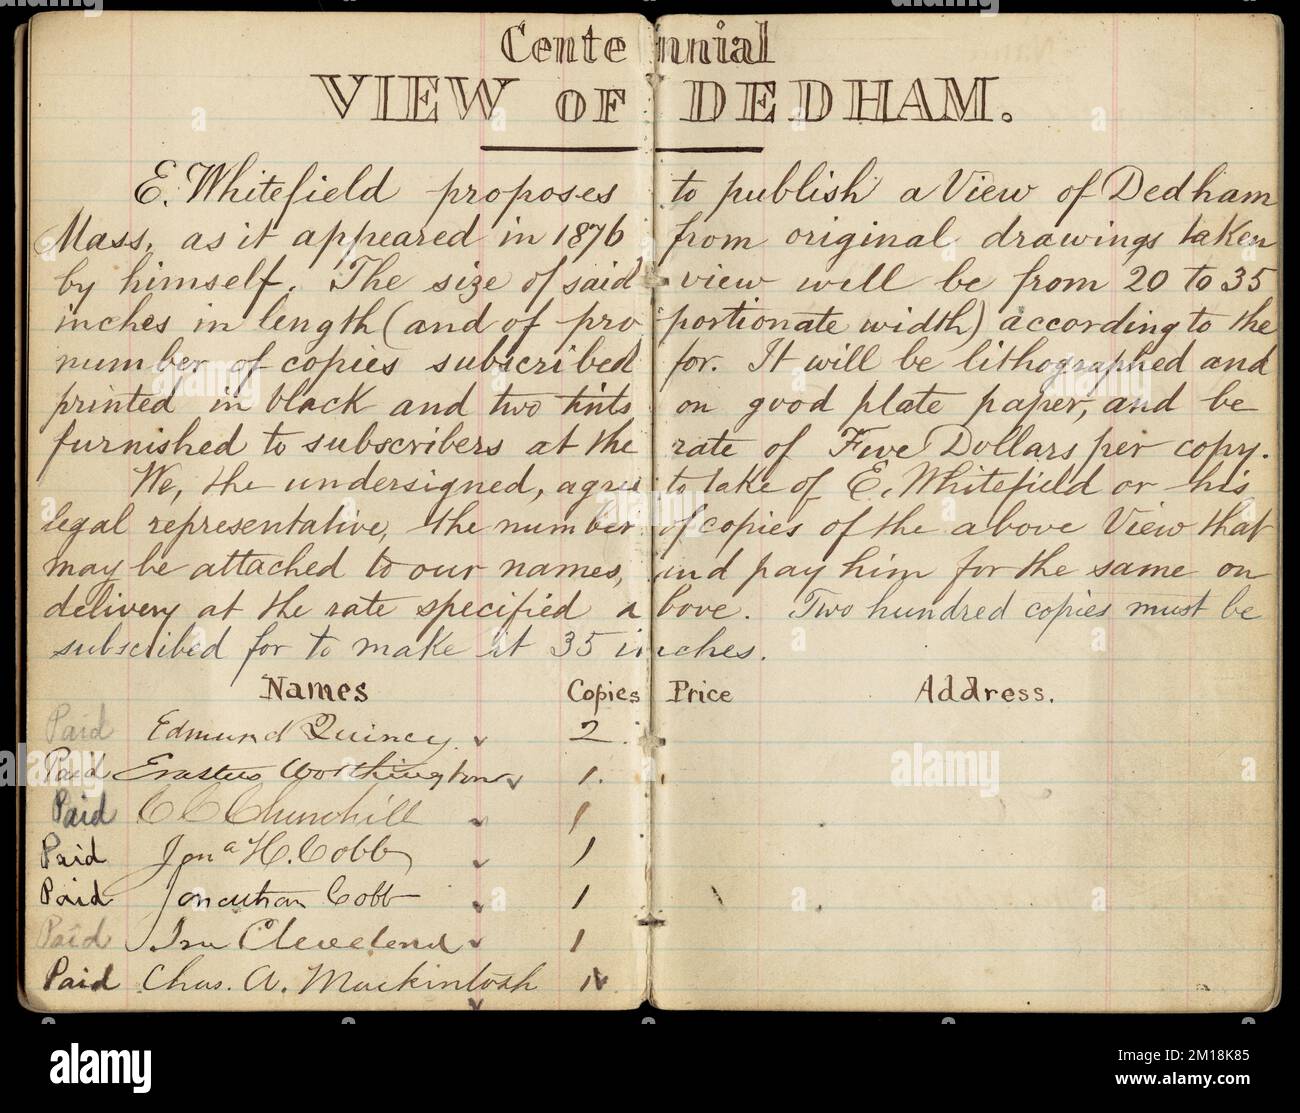 Centennial
VIEW OF DEDHAM.
E. Whitefield proposes to publish a View of Dedham
Mass, as it appeared in 1876 from original drawings taken
by himself. The size of said view will be from 20 to 35
inches in length (and of proportionate width) according to the
number of copies subscribed for. It will be lithographed and
printed in black and two tints on good plate paper, and be
furnished to subscribers at the rate of Five Dollars per copy.
We, the undersigned, agree to take of E. Whitefield or his
legal representative, the number of copies of the above View that
may be attached to our names, and pay him for the same on
delivery at the rate specified above. Two hundred copies must be
subscribed for to make it 35 inches.
Names Copies Price Address.
Paid Edmund Quincy 2
Paid Erastus Worthington 1.
Paid C C Churchill 1
Paid Jonᵃ H. Cobb 1
Paid Jonathan Cobb 1
Paid Ira Cleveland 1
Paid Chas. A. Mackintosh 1
alamy
Image ID: 2M18K85
www.alamy.com